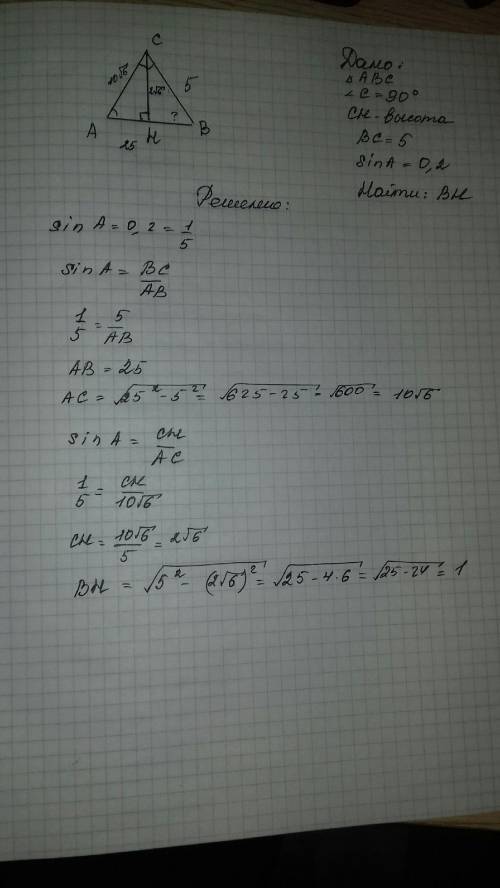 C
10√6
2√6
5
A
H
?
B
25
Дано:
△ABC
∠C=90°
CH-высота
BC=5
sinA=0,2
Найти: BH
Решение:
sin A = 0,2 = 1/5
sin A = BC/AB
1/5 = 5/AB
AB = 25
AC = √25²-5² = √625-25 = √600 = 10√6
sin A = CH/AC
1/5 = CH/10√6
CH = 10√6/5 = 2√6
BH = √5²-(2√6)² = √25-4·6 = √25-24 = 1